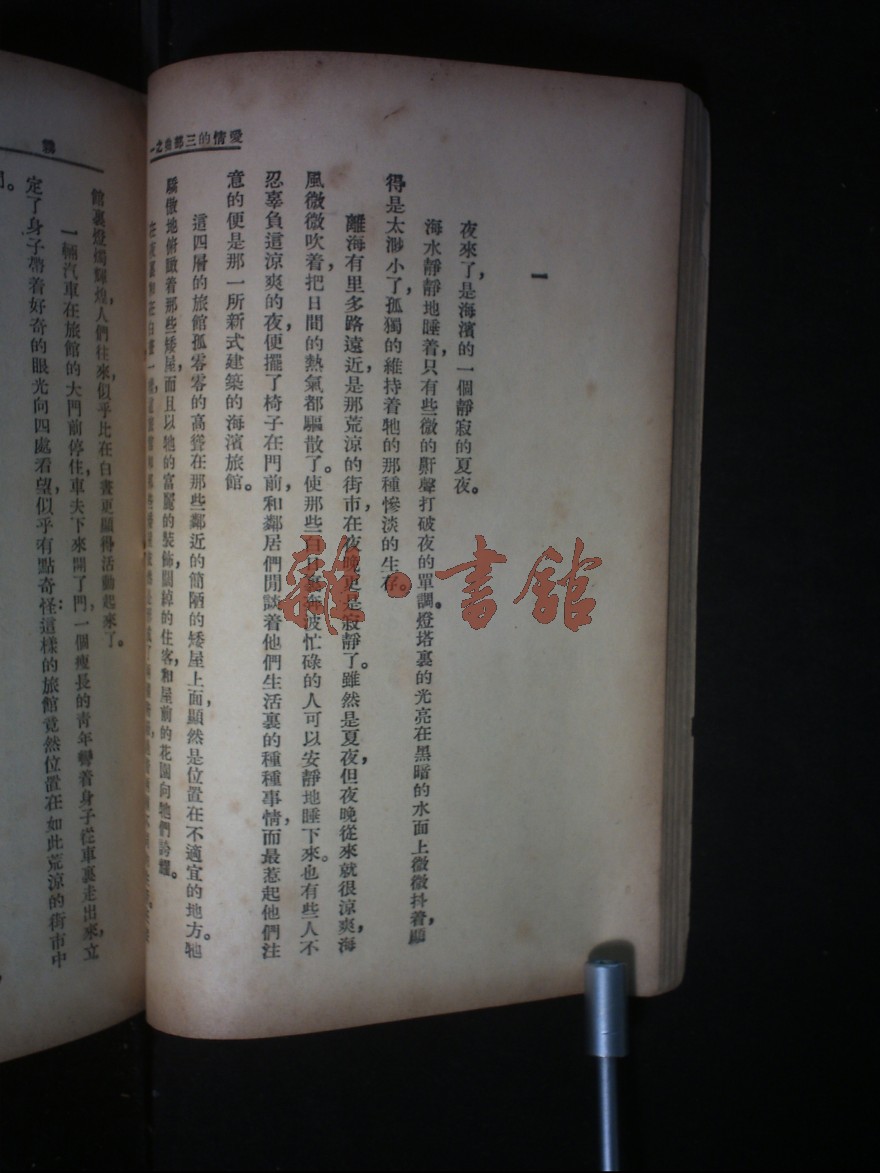 愛情的三部曲之一
一
夜來了，是海濱的一個靜寂的夏夜。
海水靜靜地睡着，只有些微的鼾聲打破夜的單調。燈塔裏的光亮在黑暗的水面上微微抖着，顯
得是太渺小了，孤獨的維持着牠的那種慘淡的生存。
離海有里多路遠近，是那荒涼的街市，在夜晚更是寂靜了。雖然是夏夜，但夜晚從來就很涼爽，海
風微微吹着，把日間的熱氣都驅散了。使那些白日裏奔波忙碌的人可以安靜地睡下來。也有些人不
忍辜負這涼爽的夜，便擺了椅子在門前，和鄰居們閒談着他們生活裏的種種事情，而最惹起他們注
意的便是那一所新式建築的海濱旅館。
這四層的旅館孤零零的高聳在那些鄰近的簡陋的矮屋上面，顯然是位置在不適宜的地方。牠
驕傲地俯瞰着那些矮屋，而且以牠的富麗的裝飾，闊綽的住客，和屋前的花園向牠們誇耀。
在夜裏和在白晝一樣，
霧
館裏燈燭輝煌，人們往來似乎比在白晝更顯得活動起來了。
一輛汽車在旅館的大門前停住，車夫下來開了門，一個瘦長的青年彎着身子從車裏走出來，立
定了身子，帶着好奇的眼光向四處看望，似乎有點奇怪：這樣的旅館竟然位置在如此荒涼的街市中
雜·書館